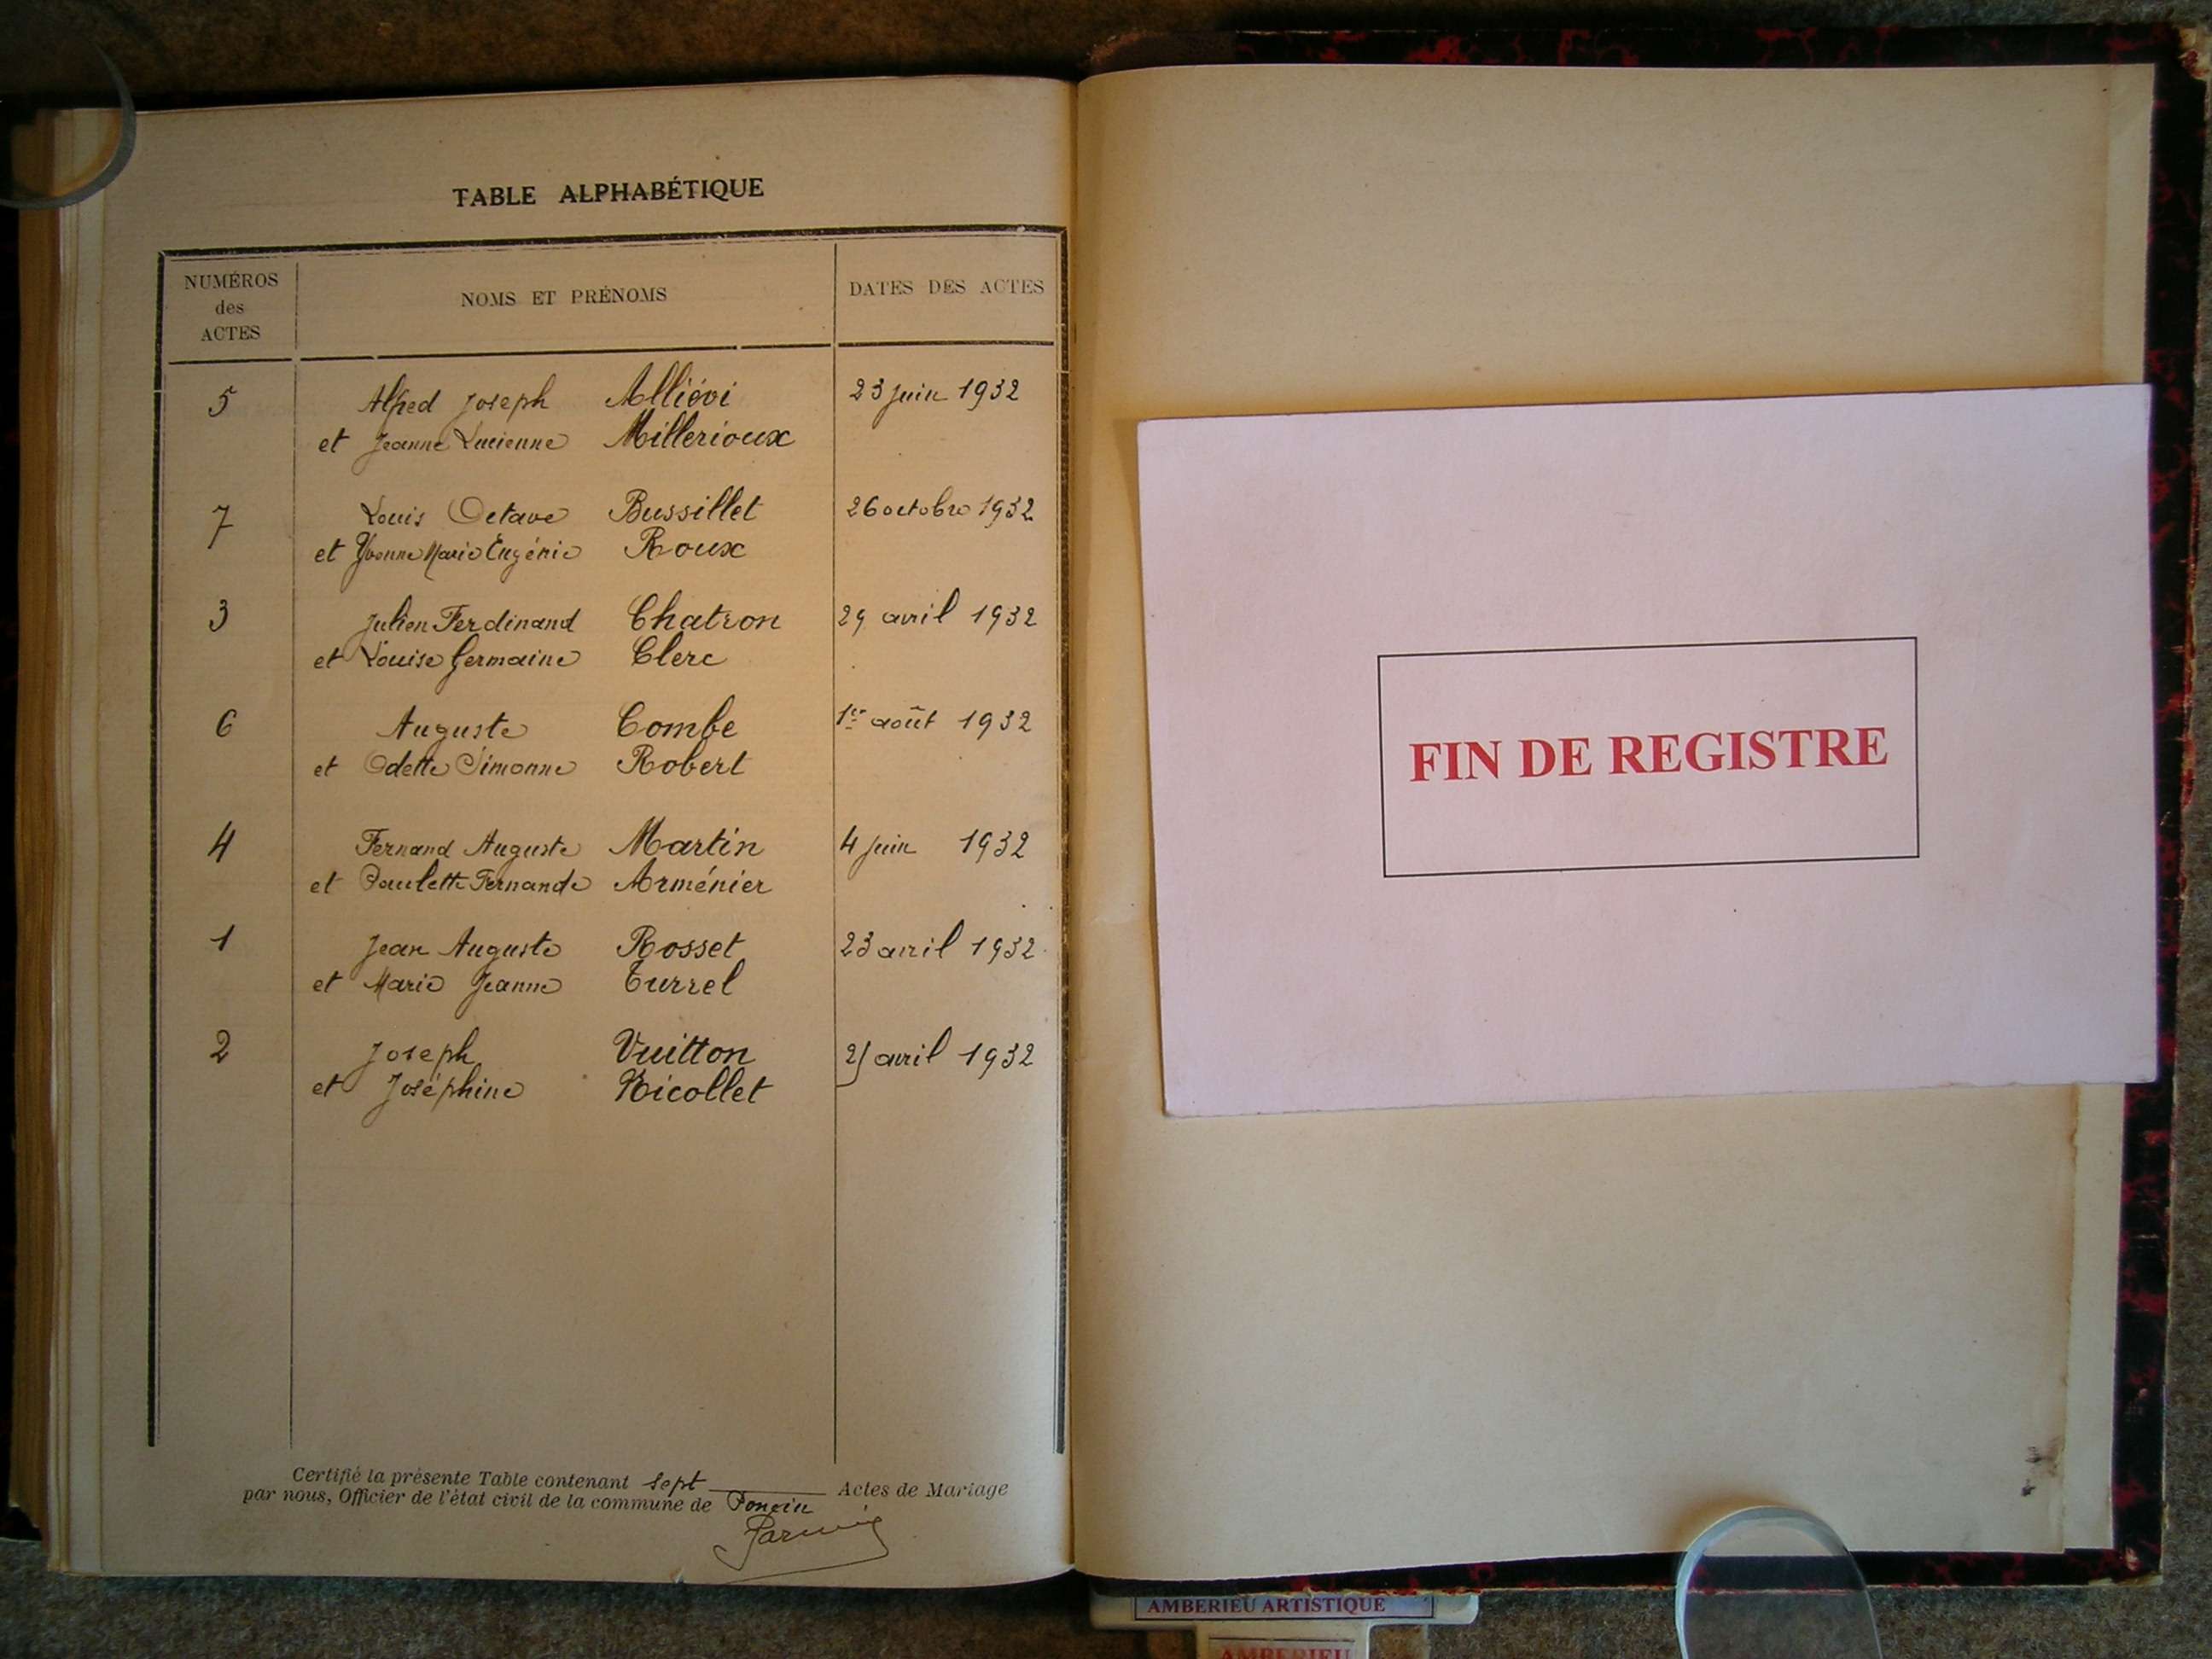 TABLE ALPHABÉTIQUE
NUMÉROS
des
ACTES
NOMS ET PRÉNOMS
DATES DES ACTES
5 Alfred Joseph Alliévi 23 juin 1932
et Jeanne Lucienne Millerioux
7 Louis Octave Bussillet 26 octobre 1932
et Yvonne Marie Eugénie Roux
3 Julien Ferdinand Chatron 29 avril 1932
et Louise Germaine Clerc
6 Auguste Combe 1er août 1932
et Odette Simonne Robert
4 Fernand Auguste Martin 4 juin 1932
et Paulette Fernande Arménier
1 Jean Auguste Rosset 23 avril 1932
et Marie Jeanne Turrel
2 Joseph Vuitton avril 1932
et Joséphine Nicollet
Certifié la présente Table contenant sept Actes de Mariage
par nous, Officier de l'état civil de la commune de Poncin
FIN DE REGISTRE
AMBERIEU ARTISTIQUE
AMBERIEU